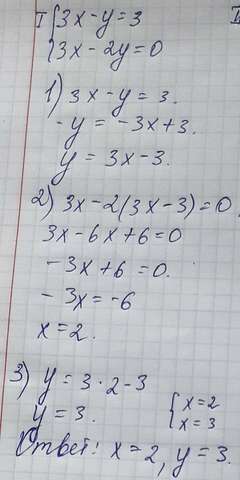 I {3x-y=3
{3x-2y=0
1) 3x-y=3.
-y=-3x+3.
y=3x-3.
2) 3x-2(3x-3)=0
3x-6x+6=0
-3x+6=0.
-3x=-6
x=2.
3) y=3·2-3
y=3. {x=2
{x=3
Ответ: x=2, y=3.